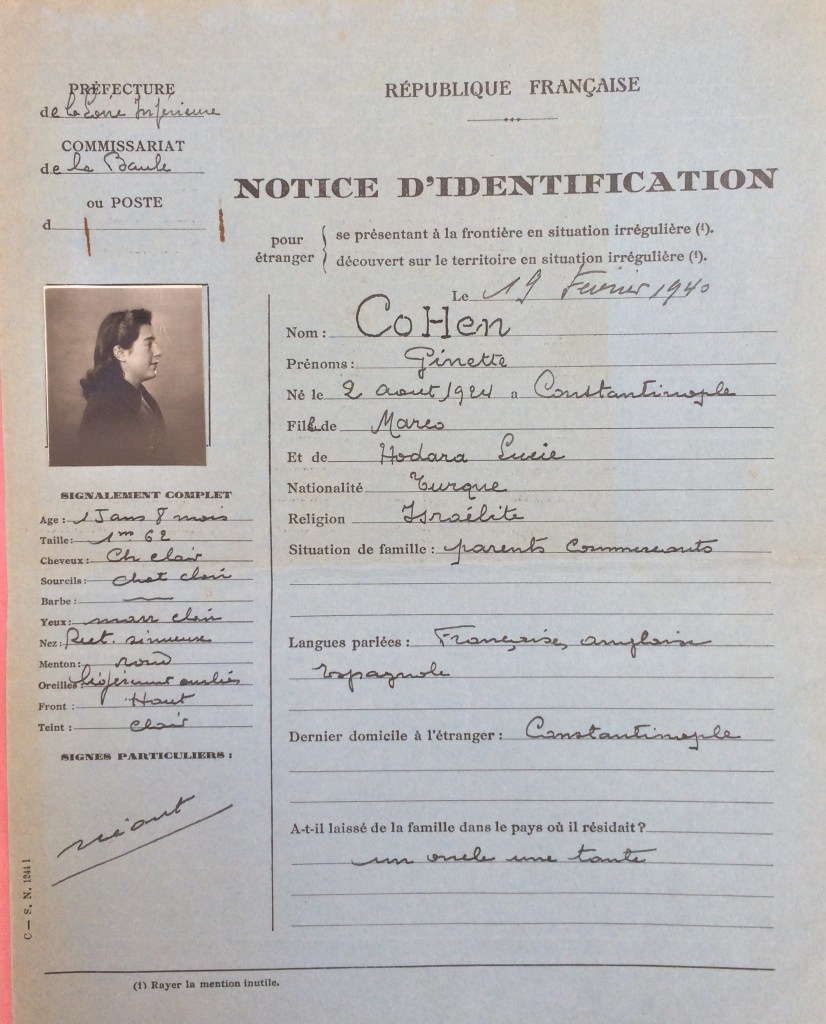 PRÉFECTURE
de la Loire Inférieure
COMMISSARIAT
de la Baule
ou POSTE
d
RÉPUBLIQUE FRANÇAISE
NOTICE D'IDENTIFICATION
pour étranger
se présentant à la frontière en situation irrégulière (1).
découvert sur le territoire en situation irrégulière (1).
Le 19 Février 1940
Nom : CoHen
Prénoms : Ginette
Né le 2 aout 1924 a Constantinople
Fille de Marco
Et de Hodara Lucie
Nationalité Turque
Religion Israélite
Situation de famille : parents commercants
Langues parlées : Française, anglaise
Espagnole
Dernier domicile à l'étranger : Constantinople
A-t-il laissé de la famille dans le pays où il résidait ?
un oncle une tante
SIGNALEMENT COMPLET
Age : 15 ans 8 mois
Taille : 1m 62
Cheveux : Ch clair
Sourcils : chat clair
Barbe :
Yeux : marr clair
Nez : Rect. sinueux
Menton : rond
Oreilles : légèrement ourlées
Front : Haut
Teint : clair
SIGNES PARTICULIERS :
néant
C — S. N. 12441
(1) Rayer la mention inutile.